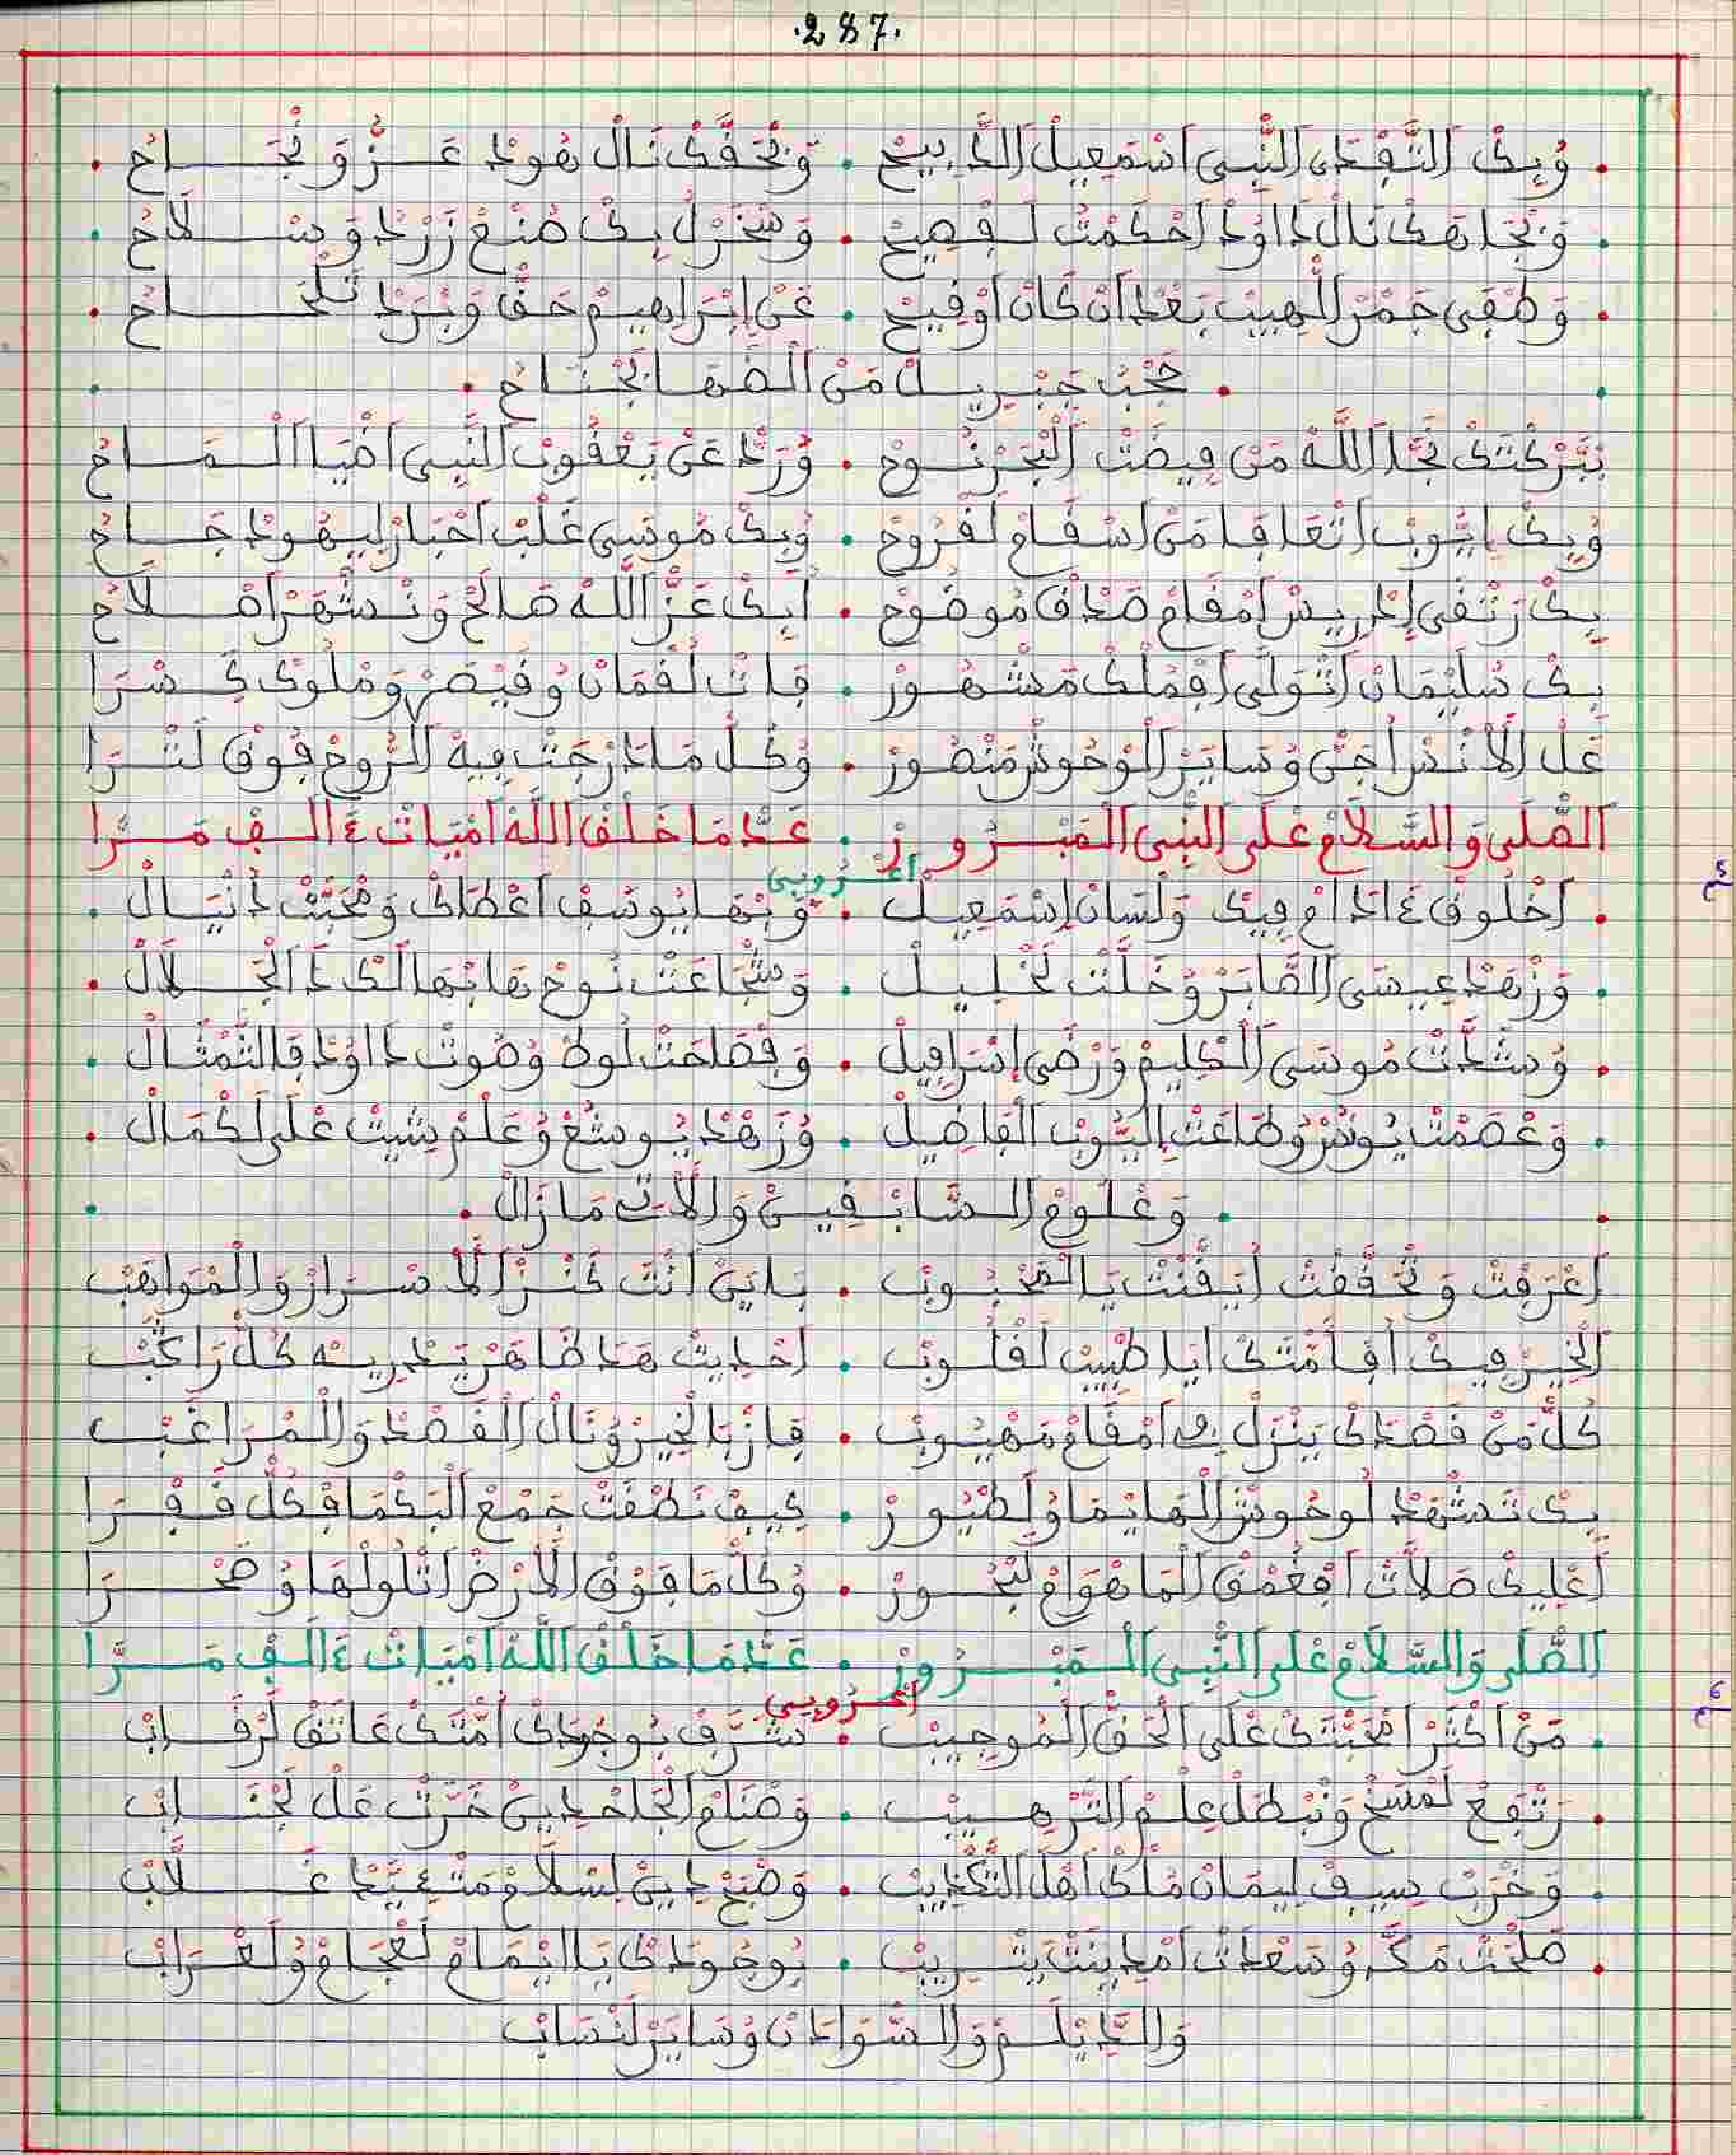 .287.
. وُبِكْ اَلتَّفْدَى اَلنَّبِي اَسْمَعِيلْ اَلذَّبِيحْ . وَبْحَقَّكْ نَالْ هُودْ عَزُّ وَنْجَاحْ .
. وَبْجَاهَكْ نَالْ دَاوُدْ اَحْكَمْتْ لَفْصِيحْ . وَسْخَرْلُ بِكْ صُنْعْ زَرْدْ وَسْلَاحْ .
. وَطْفَى جَمْرْ اَللْهِيبْ بَعْدْ اَنْ كَانْ اَوْفِيحْ . عَنْ اِبْرَاهِيمْ حَقَّا وَبْرَدْ تَلْحَاحْ .
. جَبْ جَبْرِيلْ مَنْ اَلصَّهَا بَجْنَاحْ .
بَبَرْكْتَكْ نْجَا اَللَّهْ مَنْ فِيضَتْ اَلْبَحْرْ نُوحْ . وُرَدّْ عَنْ يَعْقُوبْ اَلنَّبِي اَضْيَا اَلْمَاحْ
وُبِكْ اِيُّوبْ اَتْعَافَا مَنْ اَسْقَامْ لَقْرُوحْ . وُبِكْ مُوسَى غْلَبْ اَحْبَارْ لِيهُودْ جَاحْ
بِكْ رَتْقَى اِدْرِيسْ اَمْقَامْ صَدْقْ مُوضُوحْ . اَبِكْ عَزّْ اَللَّهْ صَالَحْ وَنْشْهَرْ اَصْلَاحْ
بِكْ سُلَيْمَانْ اَتْوَلَّى اَفْمُلْكْ مَشْهُورْ . فَاتْ لُقْمَانْ وُقَيْصَرْ وَمْلُوكْ كَسْرَا
عَلْ اَلْأَنْسْ اُجَنّْ وُسَايَرْ اَلْوْحُوشْ مَنْصُورْ . وُكُلّْ مَا دَرْجَتْ فِيهْ اَلرُّوحْ فُوقْ لَتْرَا
اَلصَّلَى وَالسَّلَامْ عْلَى اَلنَّبِي اَلْمَبْرُورْ . عَدّْ مَا خَلْقْ اَللَّهْ اَمْيَاتْ ءَالَفْ مَرَّا
اَعْرُوبِي
. اَخْلُوقْ ءَادَامْ فِيكْ وَلْسَانْ اِسْمَعِيلْ . وَبْهَا يُوسُفْ اَعْطَاكْ وَمْحَبَّتْ دَنْيَالْ .
. وَزْهَدْ عِيسَى اَلصَّابَرْ وَخَلَّتْ لَخْلِيلْ . وَشْجَاعَتْ نُوحْ هَابْهَا لَكْ دَا اَلْجَلَالْ .
. وُشَدَّتْ مُوسَى اَلْكَلِيمْ وَرْضَى اِسْرَافِيلْ . وَفْصَاحَتْ لُوطْ وُصُوتْ دَاوُدْ فَالتَّمْثَالْ .
. وَعْصَمْتْ يُونَسْ وُطَاعَتْ اِيُّوبْ اَلْفَاضِيلْ . وُزَهْدْ يُوشَعْ وُعَلْمْ شِيتْ عْلَى لَكْمَالْ .
. وَعْلُومْ اَلسَّابْقِينْ وَالْأَتِي مَازَالْ .
اَعْرَفْتْ وَتْحَقَّقْتْ اَيَقَّنْتْ يَا اَلْمَحْبُوبْ . بَايَنْ اَنْتَ كَنْزْ اَلْأَسْرَارْ وَالْمْوَاهَبْ
اَلْخِيرْ فِيكْ اَفْأُمْتَكْ اَيَا طْبِيبْ لَقْلُوبْ . اَحْدِيثْ هَدَا ظَاهَرْ يَدْرِيهْ كُلّْ رَاكَبْ
كُلّْ مَنْ قَصْدَكْ يَنْزَلْ فِي اَمْقَامْ مَهْيُوبْ . فَازْ بَالْخِيرْ وُنَالْ اَلْقَصْدْ وَالْمْرَاغَبْ
بِكْ تَشْهَدْ لَوْحُوشْ اَلْهَايْمَا وُلَطْيُورْ . كِيفْ نَطْقَتْ جَمْعْ اَلْبَكْمَا فْكُلّْ قَفْرَا
اَعْلِيكْ صَلَّاتْ اَفْغُمْقْ اَلْمَا هْوَامْ لَبْحُورْ . وُكُلّْ مَا فَوْقْ اَلْأَرْضْ اَتْلُولْهَا وُصَحْرَا
اَلصَّلَى وَالسَّلَامْ عْلَى اَلنَّبِي اَلْمَبْرُورْ . عَدّْ مَا خَلْقْ اَللَّهْ اَمْيَاتْ ءَالَفْ مَرَّا
اَعْرُوبِي
. مَنْ اَكْثَرْ اَمْحَبْتَكْ عْلَى اَلْحَقّْ اَلْمُوجِيبْ . شَرَّفْ بُوجُودَكْ اُمّْتَكْ عَاتَقْ لَرْقَابْ
. رَتْفَعْ لَمْسَخْ وَنْبْطَلْ عِلْمْ اَلتَّرْهِيبْ . وَصْنَامْ اَلْجَاحْدِينْ خَرَّتْ عَلْ لَجْنَابْ
. وَخْرَبْ بِسِيفْ لِيمَانْ مُلْكْ اَهْلْ اَلتَّكْذِيبْ . وَصْبَحْ دِينْ لِسْلَامْ مَتْءَيَّدْ غَلَّابْ
. صَلْحَتْ مَكَّ وُسَعْدَاتْ اَمْدِينَتْ يَثْرِيبْ . بُوجُودَكْ يَا اِيْمَامْ لَعْجَامْ وُلَعْرَابْ
وَالدَّيْلَمْ وَالسُّودَانْ وُسَايَرْ لَنْسَابْ